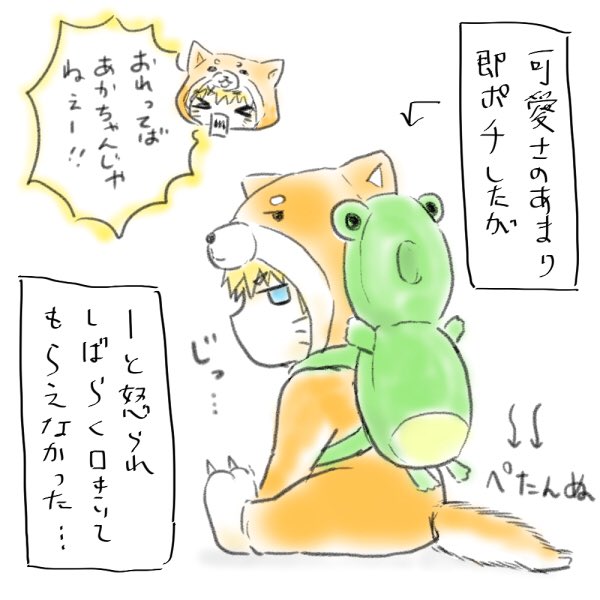 可愛さのあまり
即ポチしたが
おれってば
あかちゃんじゃ
ねぇー!!
じっ…
ぺたんぬ
ーと怒られ
しばらく口きいて
もらえなかった…